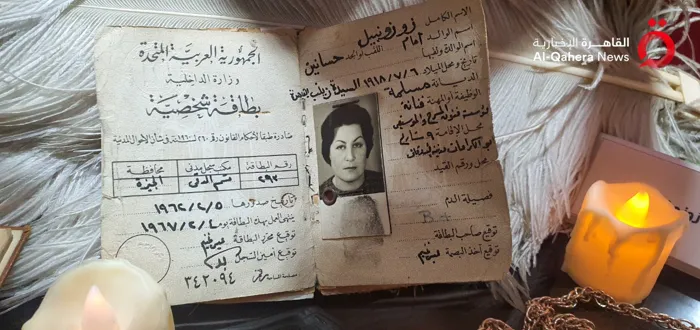 القاهرة الإخبارية
Al-Qahera News
الجمهورية العربية المتحدة
وزارة الداخلية
بطاقة شخصية
صادرة طبقا لأحكام القانون رقم ٢٦٠ لسنة ١٩٦٠ في شأن الأحوال المدنية
رقم البطاقة
مكتب سجل مدني
محافظة
٢٩٢
قسم الدقى
الجيزة
تاريخ صدورها ١٩٦٢/٢/٥
ينتهى العمل بهذه البطاقة يوم ١٩٦٧/٢/٤
توقيع محرر البطاقة
توقيع أمين السجل
٣٤٢٠٩٤
الاسم الكامل زوزو نبيل
اسم الوالد إمام اللقب لو اتحد حسانين
اسم الوالدة ولقبها
تاريخ ومحل الميلاد ١٩١٨/٧/٦ السيدة زينب
الديانة مسلمة
الوظيفة أو المهنة فنانة
مؤسسة فنون المسرح والموسيقى
محل الإقامة ٩ شارع
محل ورقم القيد
فصيلة الدم
توقيع صاحب البطاقة
توقيع آخذ البصمة